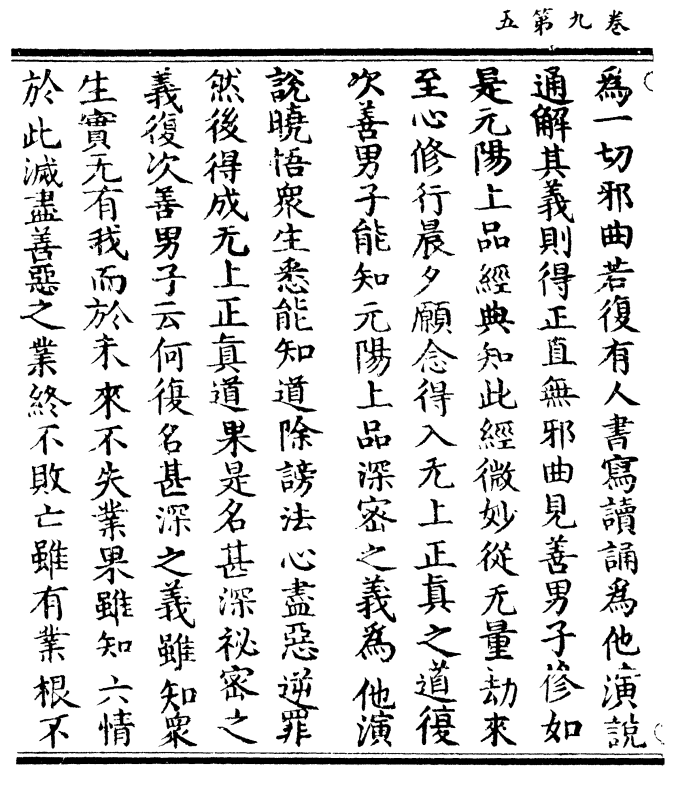 卷九第五
為一切邪曲若復有人書寫讀誦為他演說
通解其義則得正直無邪曲見善男子修如
是元陽上品經典知此經微妙從无量劫來
至心修行晨夕願念得入无上正真之道復
次善男子能知元陽上品深密之義為他演
說曉悟眾生悉能知道除謗法心盡惡逆罪
然後得成无上正真道果是名甚深祕密之
義復次善男子云何復名甚深之義雖知眾
生實无有我而於未來不失業果雖知六情
於此滅盡善惡之業終不敗亡雖有業根不